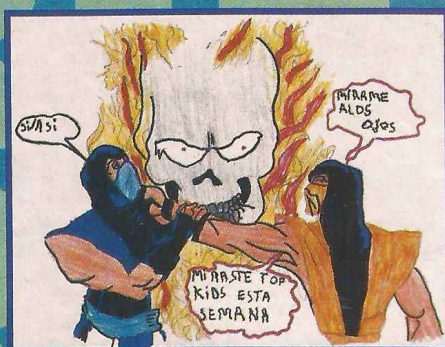 SI/ASI
MIRAME
ALOS
OJOS
MIRASTE TOP
KIDS ESTA
SEMANA